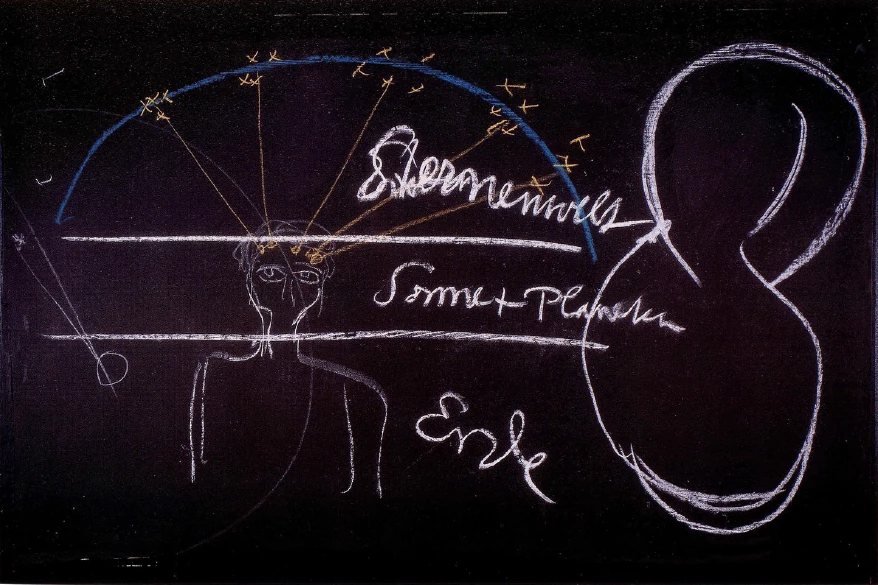 Sternenwelt
Sonne + Planeten
Erde